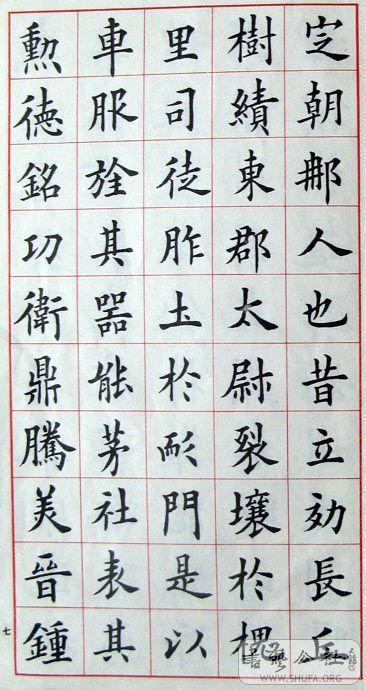 定朝那人也昔立効長丘
樹績東郡太尉裂壤於槐
里司徒胙土於耏門是以
車服旌其器能茅社表其
勲德銘功衛鼎騰美晉鍾
七
WWW.SHUFA.ORG